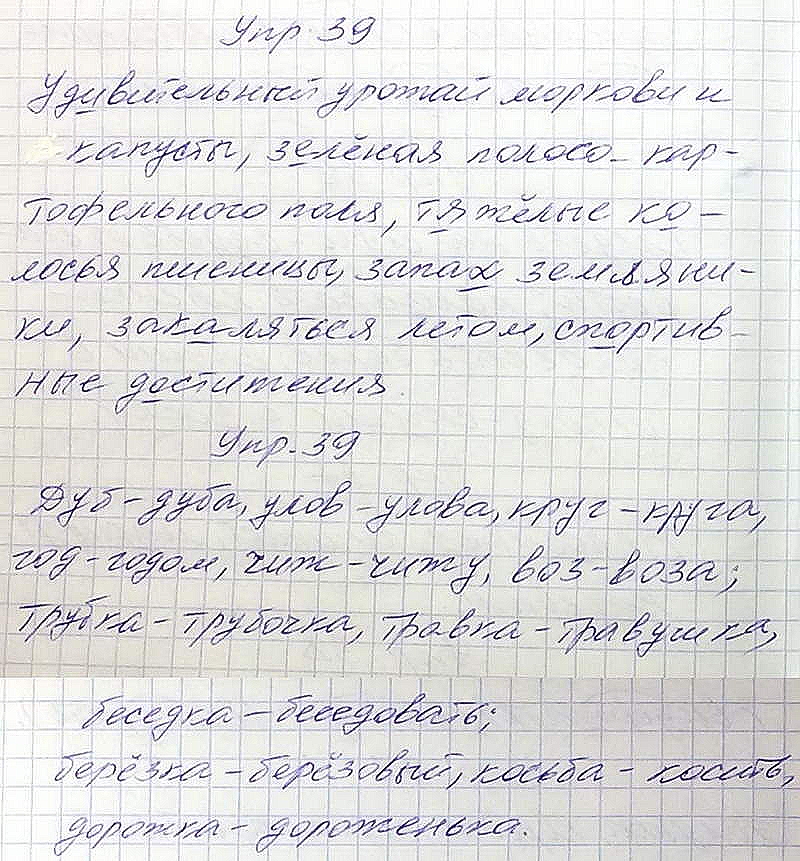 Упр. 39
Удивительный урожай моркови и
капусты, зелёная полосо кар-
тофельного поля, тяжёлые ко-
лосья пшеницы, запах земляни-
ки, закаляться летом, спортив-
ные достижения.
Упр. 39
Дуб - дуба, улов - улова, круг - круга,
год - годом, чиж - чижу, воз - воза;
трубка - трубочка, травка - травушка,
беседка - беседовать;
берёзка - берёзовый, косьба - косить,
дорожка - дороженька.